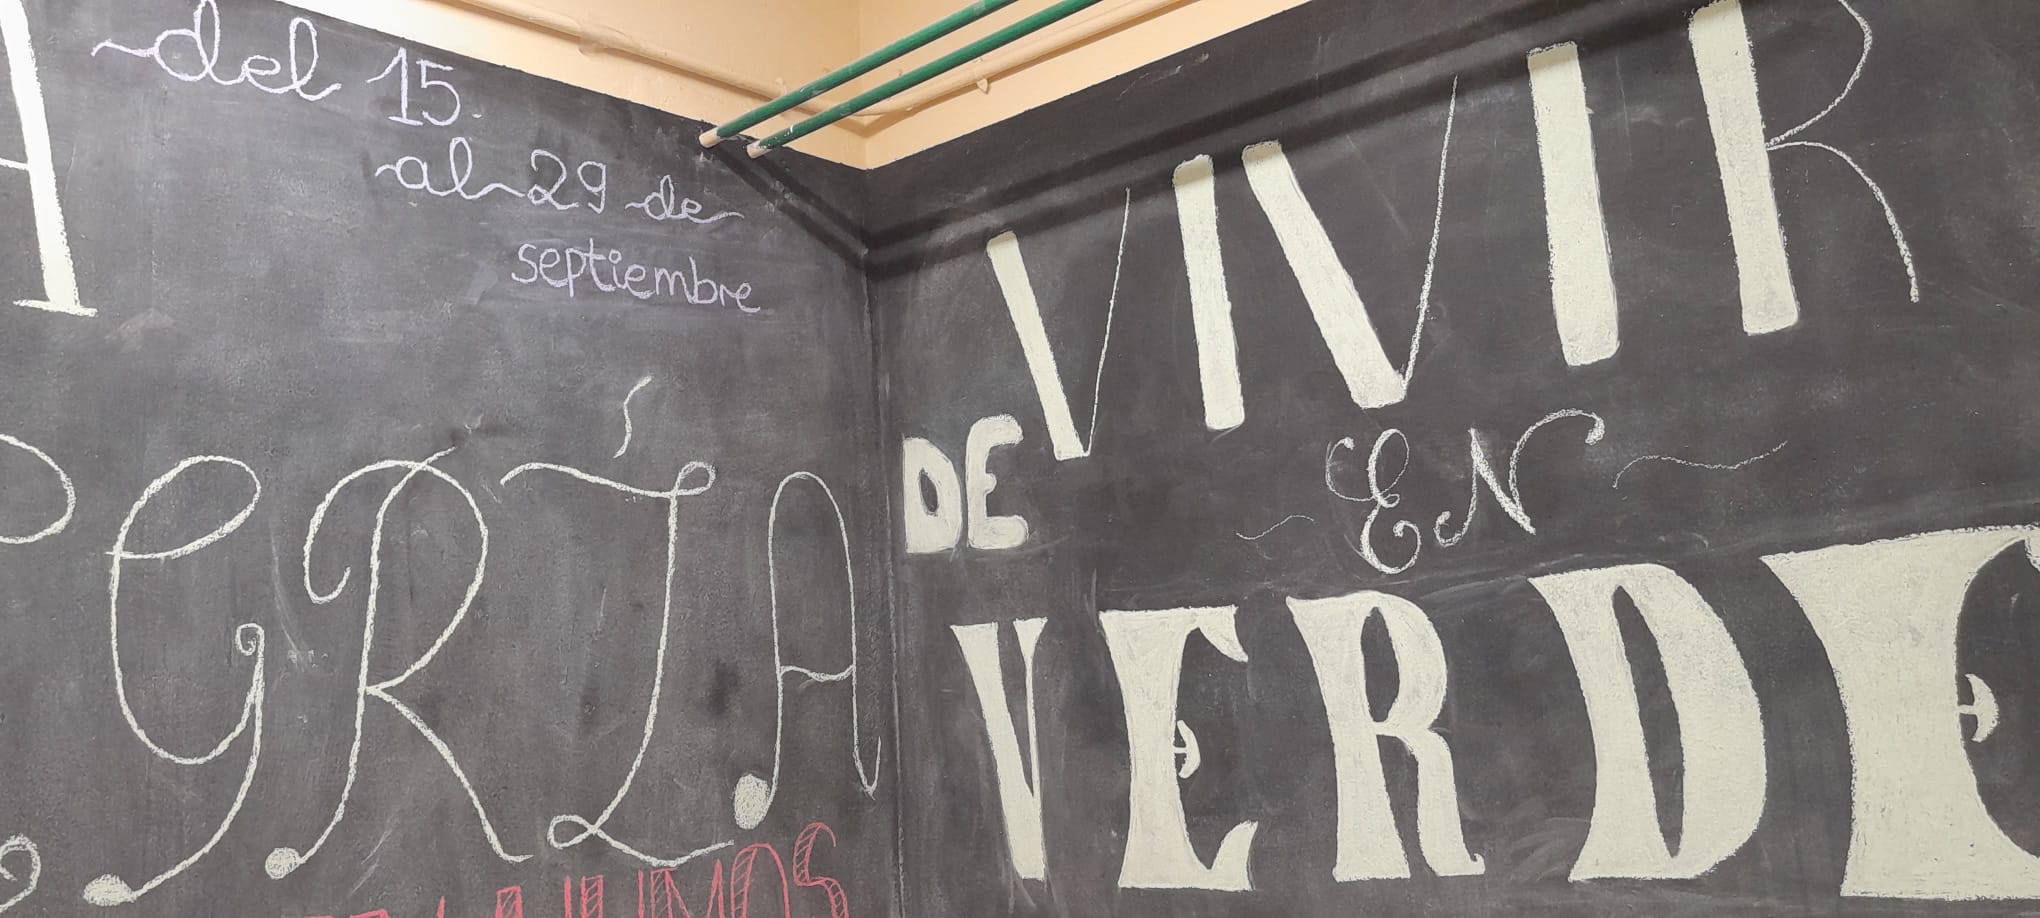 A
del 15
al 29 de
septiembre
GRÍA
DE VIVIR
EN
VERDE